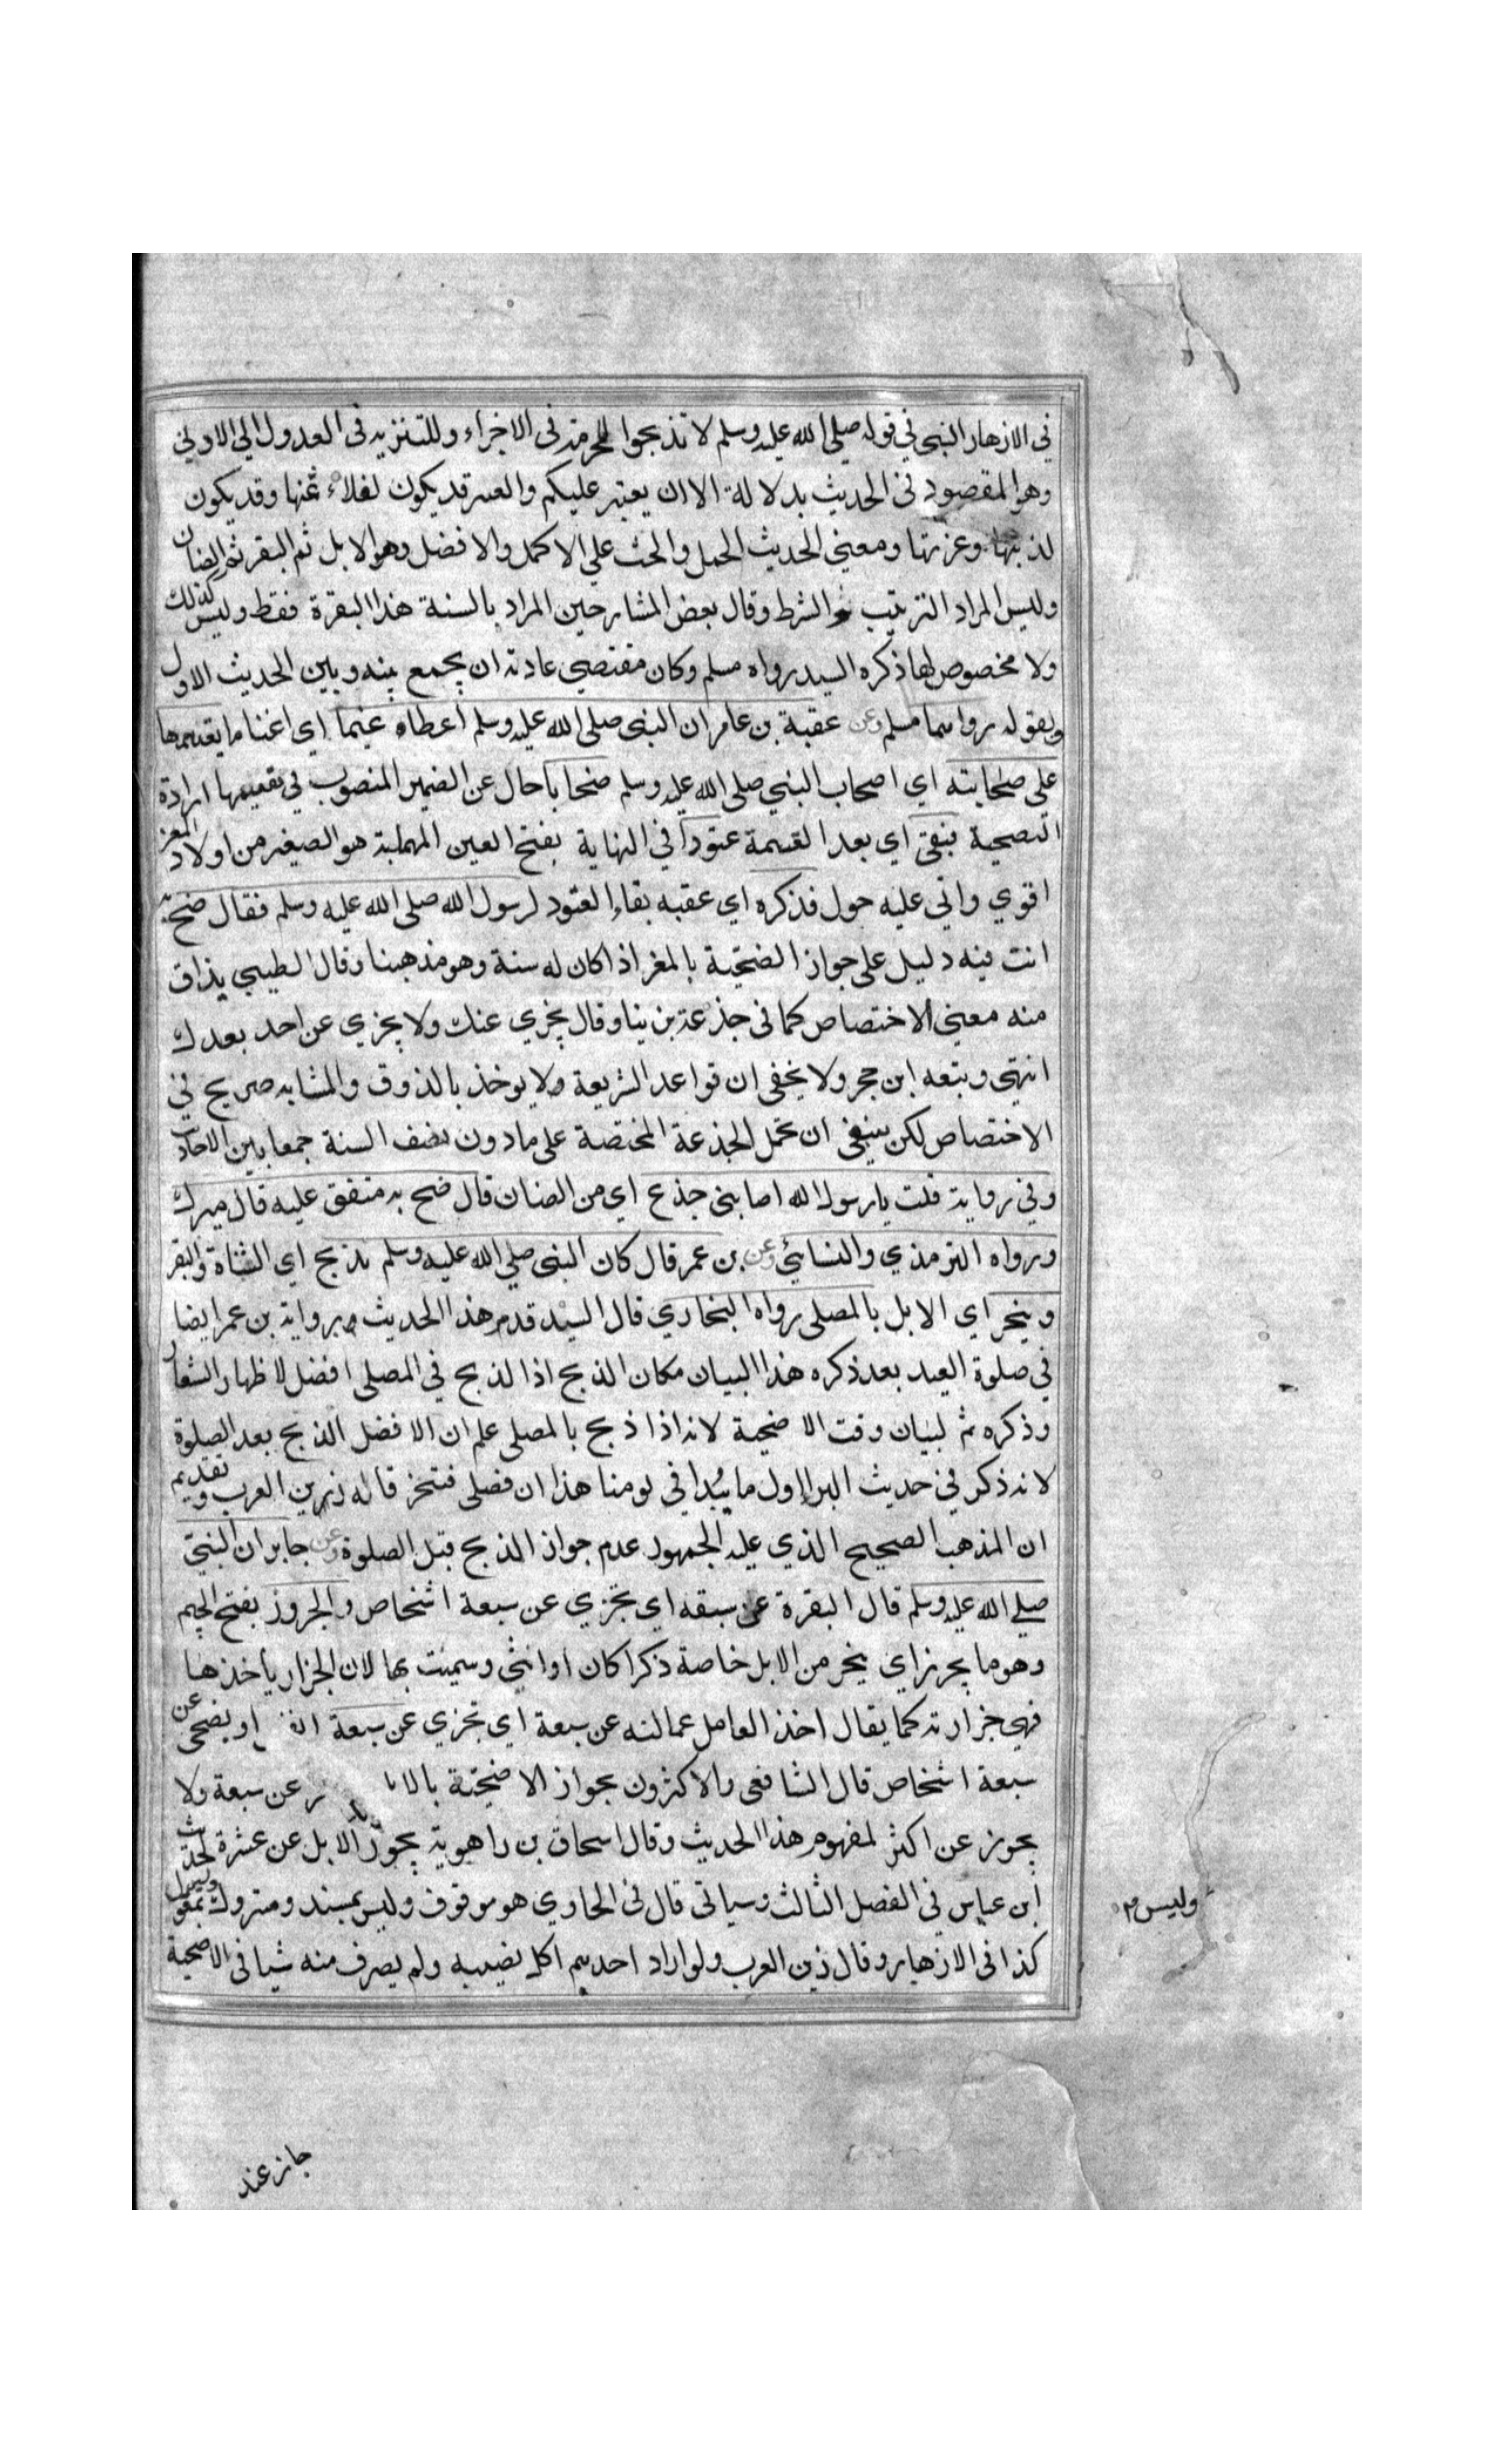 في الازهار النهي في قوله صلى الله عليه وسلم لا تذبحوا للحرمة في الاجزاء وللتنزيه في العدول الي الاولي
وهو المقصود في الحديث بدلالة الا ان يعتبر عليكم والعسر قد يكون لغلاء ثمنها وقد يكون
وعزتها ومعني الحديث الحمل والحث علي الاكمل والافضل وهو الابل ثم البقر ثم الضان
وليس المراد الترتيب والشرط وقال بعض الشارحين المراد بالسنة هذا البقرة فقط وليس كذلك
ولا مخصوص لها ذكره السيد رواه مسلم وكان مقتضي عادته ان يجمع بينه وبين الحديث الاول
ويقوله رواهما مسلم وعن عقبة بن عامر ان النبي صلى الله عليه وسلم اعطاه غنما اي اغناما يقسمها
على صحابته اي اصحاب النبي صلى الله عليه وسلم ضحايا حال عن الضمير المنصوب في يقسمها ارادة
التضحية فبقي اي بعد القسمة عتودا في النهاية بفتح العين المهملة هو الصغير من اولاد المعز
اقوي واتى عليه حول فذكره اي عقبه بقاء العتود لرسول الله صلى الله عليه وسلم فقال ضح به
انت فيه دليل على جواز الضحية بالمغز اذا كان له سنة وهو مذهبنا وقال الطيبي يذاق
منه معني الاختصاص كما في جذعة بن نيار وقال يجزي عنك ولا يجزي عن احد بعدك
انتهى وتبعه ابن حجر ولا يخفى ان قواعد الشريعة لا يوخذ بالذوق والمشابه صريح في
الاختصاص لكن ينبغي ان تحمل الجذعة المختصة على ما دون نصف السنة جمعا بين الاحاديث
وفي رواية قلت يا رسول الله اصابني جذع اي من الضان قال ضح به متفق عليه قال ميرك
ورواه الترمذي والنسائي وعن بن عمر قال كان النبي صلى الله عليه وسلم يذبح اي الشاة والبقر
وينحر اي الابل بالمصلى رواه البخاري قال السيد قدم هذا الحديث برواية بن عمر ايضا
في صلوة العيد بعد ذكره هذا البيان مكان الذبح اذ الذبح في المصلى افضل لاظهار الشعار
وذكره ثم لبيان وقت الاضحية لانه اذا ذبح بالمصلى علم ان الافضل الذبح بعد الصلوة
لانه ذكر في حديث البرا اول ما يبدا في يومنا هذا ان نصلى فننحر قاله زين العرب وتقديم
ان المذهب الصحيح الذي عليه الجمهور عدم جواز الذبح قبل الصلوة وعن جابر ان النبي
صلى الله عليه وسلم قال البقرة عن سبعة اي تجزي عن سبعة اشخاص والجروز بفتح الجيم
وهو ما يجزر اي ينحر من الابل خاصة ذكرا كان او انثى وسميت بها لان الجزار ياخذها
فهي جزارته كما يقال اخذ العامل عمالته عن سبعة اي تجزي عن سبعة او يضحى عن
سبعة اشخاص قال الشافعي والاكثرون بجواز الاضحية عن سبعة ولا
يجوز عن اكثر لمفهوم هذا الحديث وقال اسحاق بن راهوية يجوز الابل عن عشرة لحديث
ابن عباس في الفصل الثالث وسياتي قال في الحاوي هو موقوف وليس بمسند ومتروك
كذا في الازهار وقال زين العرب ولو اراد احدهم اكل نصيبه ولم يصرف منه شيا في الاضحية
وليس
جاز عند